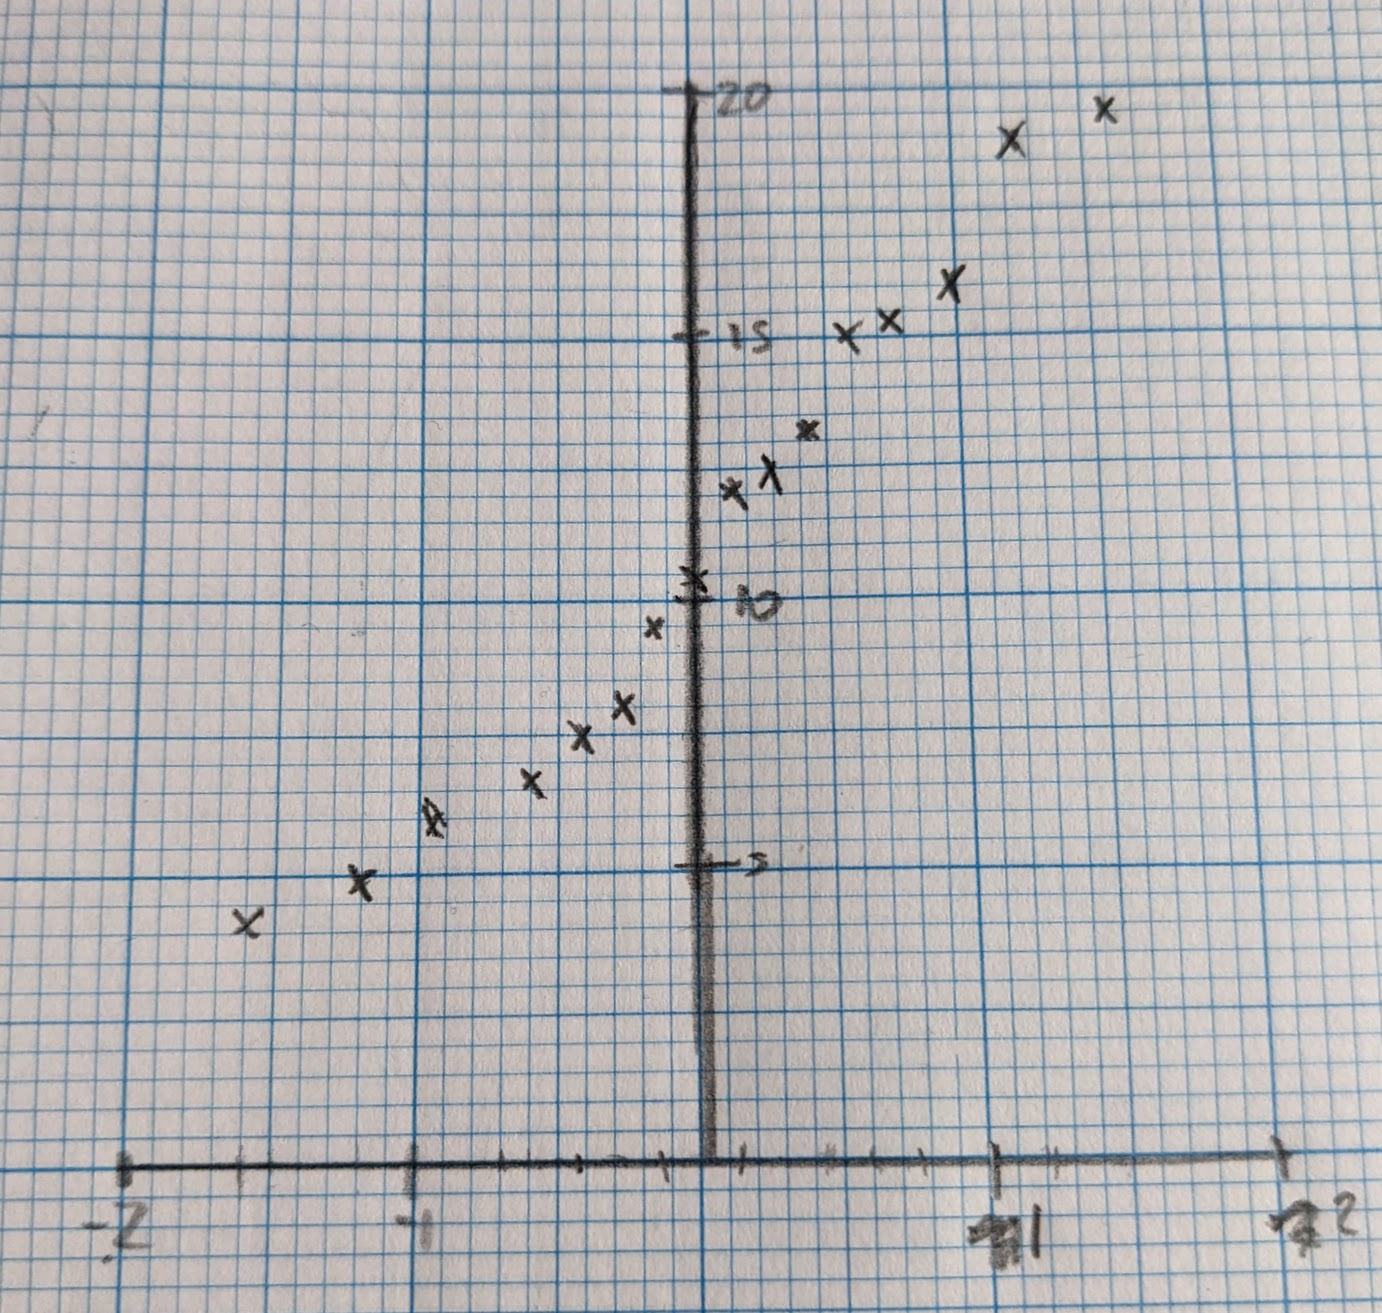 20
15
10
5
-2 -1 1 2